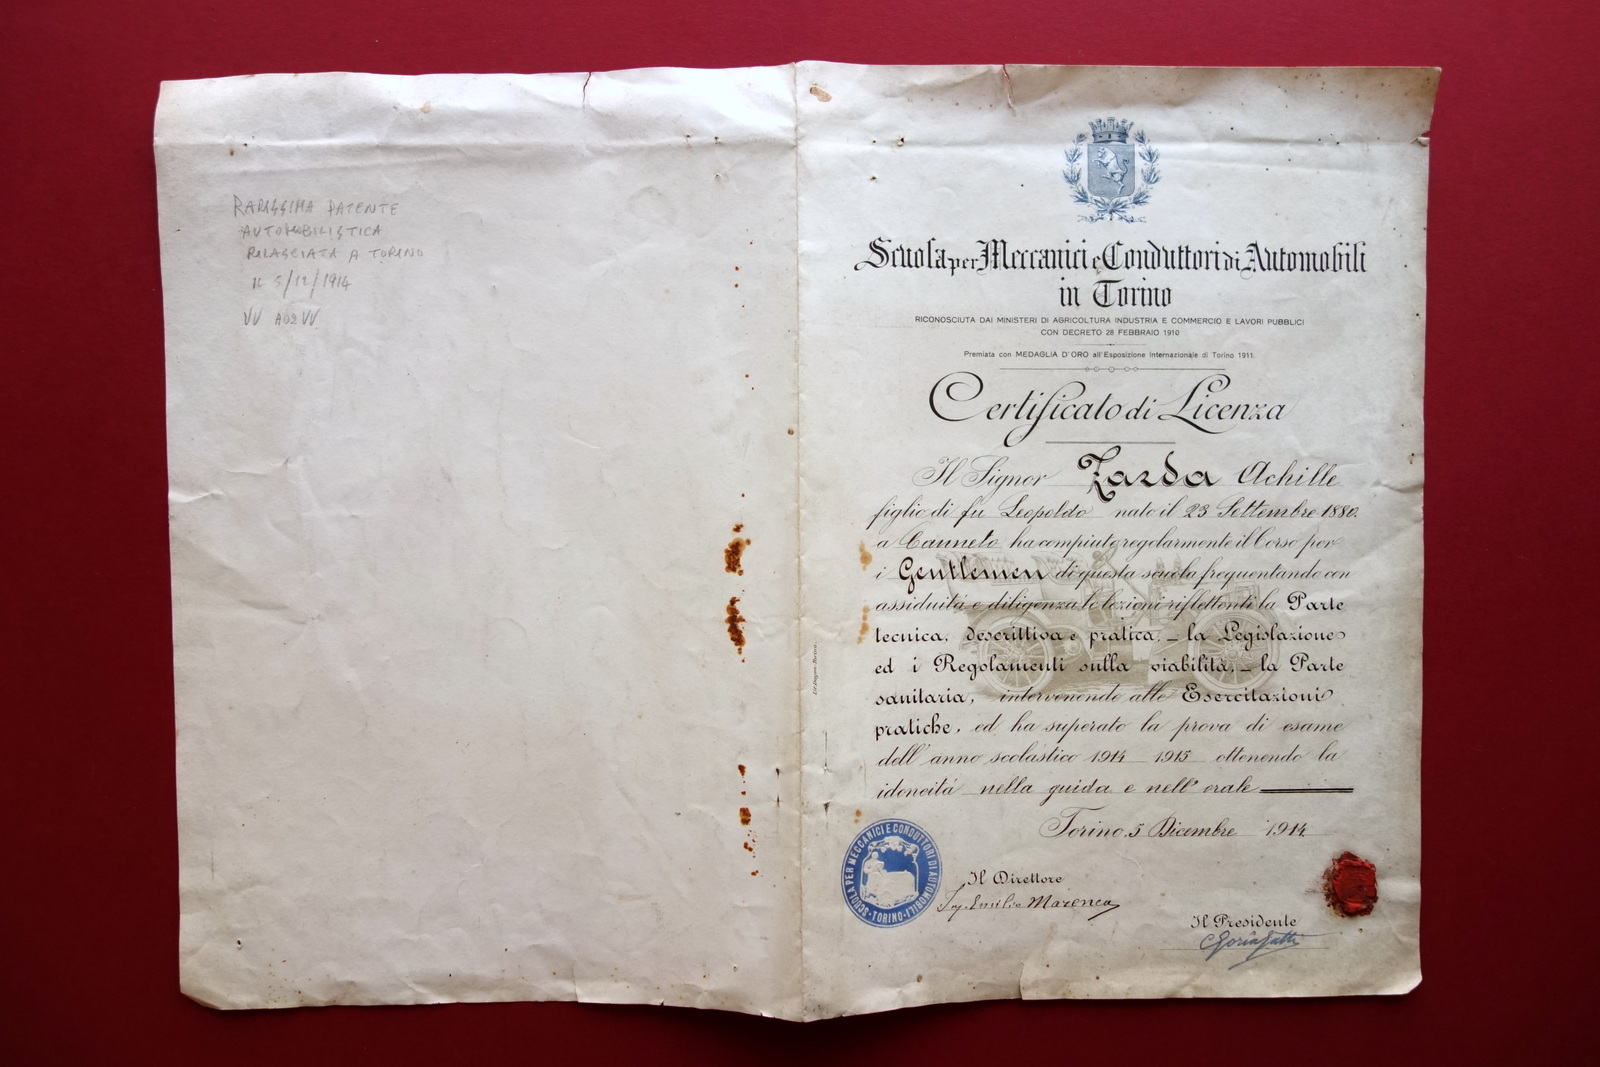 RARISSIMA PATENTE
AUTOMOBILISTICA
RILASCIATA A TORINO
IL 5/12/1914
VV A02 VV
Scuola per Meccanici e Conduttori di Automobili
in Torino
RICONOSCIUTA DAI MINISTERI DI AGRICOLTURA INDUSTRIA E COMMERCIO E LAVORI PUBBLICI
CON DECRETO 28 FEBBRAIO 1910
Premiata con MEDAGLIA D'ORO all'Esposizione Internazionale di Torino 1911.
Certificato di Licenza
Il Signor Zarda Achille
figlio di fu Leopoldo nato il 23 Settembre 1880.
a Canneto ha compiuto regolarmente il Corso per
i Gentlemen di questa scuola frequentando con
assiduità e diligenza le lezioni riflettenti la Parte
tecnica, descrittiva e pratica, – la Legislazione
ed i Regolamenti sulla viabilità, – la Parte
sanitaria, intervenendo alle Esercitazioni
pratiche, ed ha superato la prova di esame
dell'anno scolastico 1914 1915 ottenendo la
idoneità nella guida e nell'orale
Torino, 5 Dicembre 1914
SCUOLA PER MECCANICI E CONDUTTORI DI AUTOMOBILI
· TORINO ·
Il Direttore
Ing. Emilio Marenco
Il Presidente